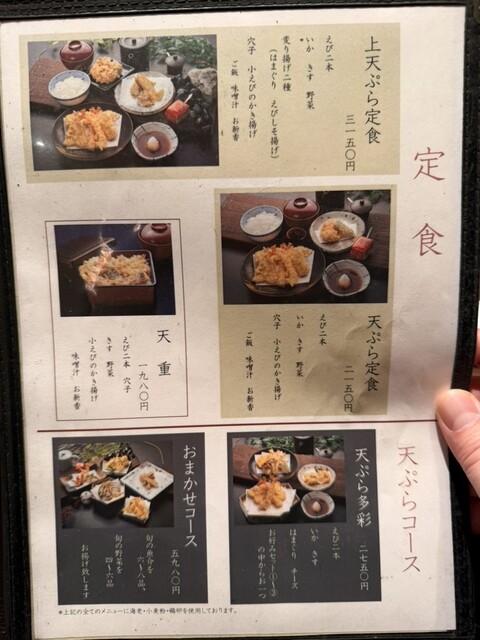 定食
上天ぷら定食
三一五〇円
えび二本
いか きす 野菜
変り揚げ二種
(はまぐり えびしそ揚げ)
穴子 小えびのかき揚げ
ご飯 味噌汁 お新香
天ぷら定食
二一五〇円
えび二本
いか きす 野菜
穴子 小えびのかき揚げ
ご飯 味噌汁 お新香
天重
一九八〇円
えび二本 穴子
きす 野菜
小えびのかき揚げ
味噌汁 お新香
天ぷらコース
天ぷら多彩
二七五〇円
えび二本
いか きす
はまぐり チーズ
お好みセット①〜③
の中からお一つ
おまかせコース
五九八〇円
旬の魚介を
六〜八品、
旬の野菜を
四〜六品
お揚げ致します
*上記の全てのメニューに海老・小麦粉・鶏卵を使用しております。